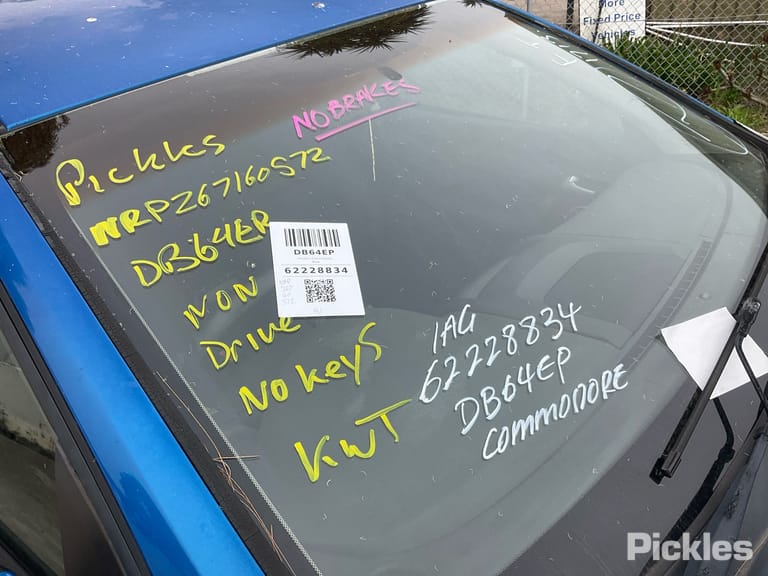 More
Fixed Price
Vehicles
NO BRAKES
Pickles
NRPZ67160572
DB64EP
NON
Drive
No keys
V.WT
DB64EP
62228834
IAG
62228834
DB64EP
COMMODORE
Pickles